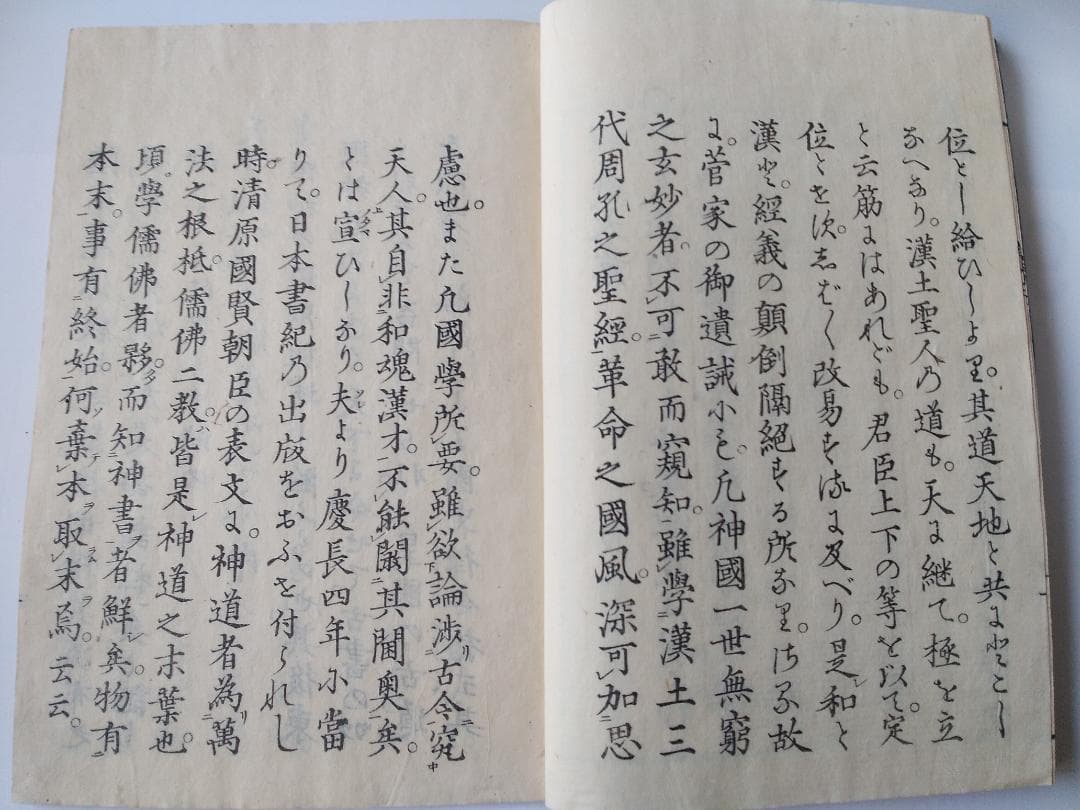 位とし給ひしより。其道天地と共にとこし
なへなり。漢土聖人の道も。天に継て。極を立
と云筋にはあれども。君臣上下の等を以て。定
位とせず。しばしば改易するに及べり。是和と
漢と。經義の顛倒隔絶する所なり。はた故
に。菅家の御遺誡にも。凡神國一世無窮
之玄妙者。不可敢而窺知。雖學漢土三
代周孔之聖經。革命之國風。深可加思
慮也。また凡國學所要。雖欲論渉古今究
天人。其自非和魂漢才。不能闞其閫奥矣。
とは宣ひしなり。夫より慶長四年に當
りて。日本書紀の出版をおふせ付られし
時。清原國賢朝臣の表文に。神道者為萬
法之根柢。儒佛二教。皆是神道之末葉也。
頃。學儒佛者夥。而知神書者鮮矣。物有
本末。事有終始。何棄本取末焉。云云。